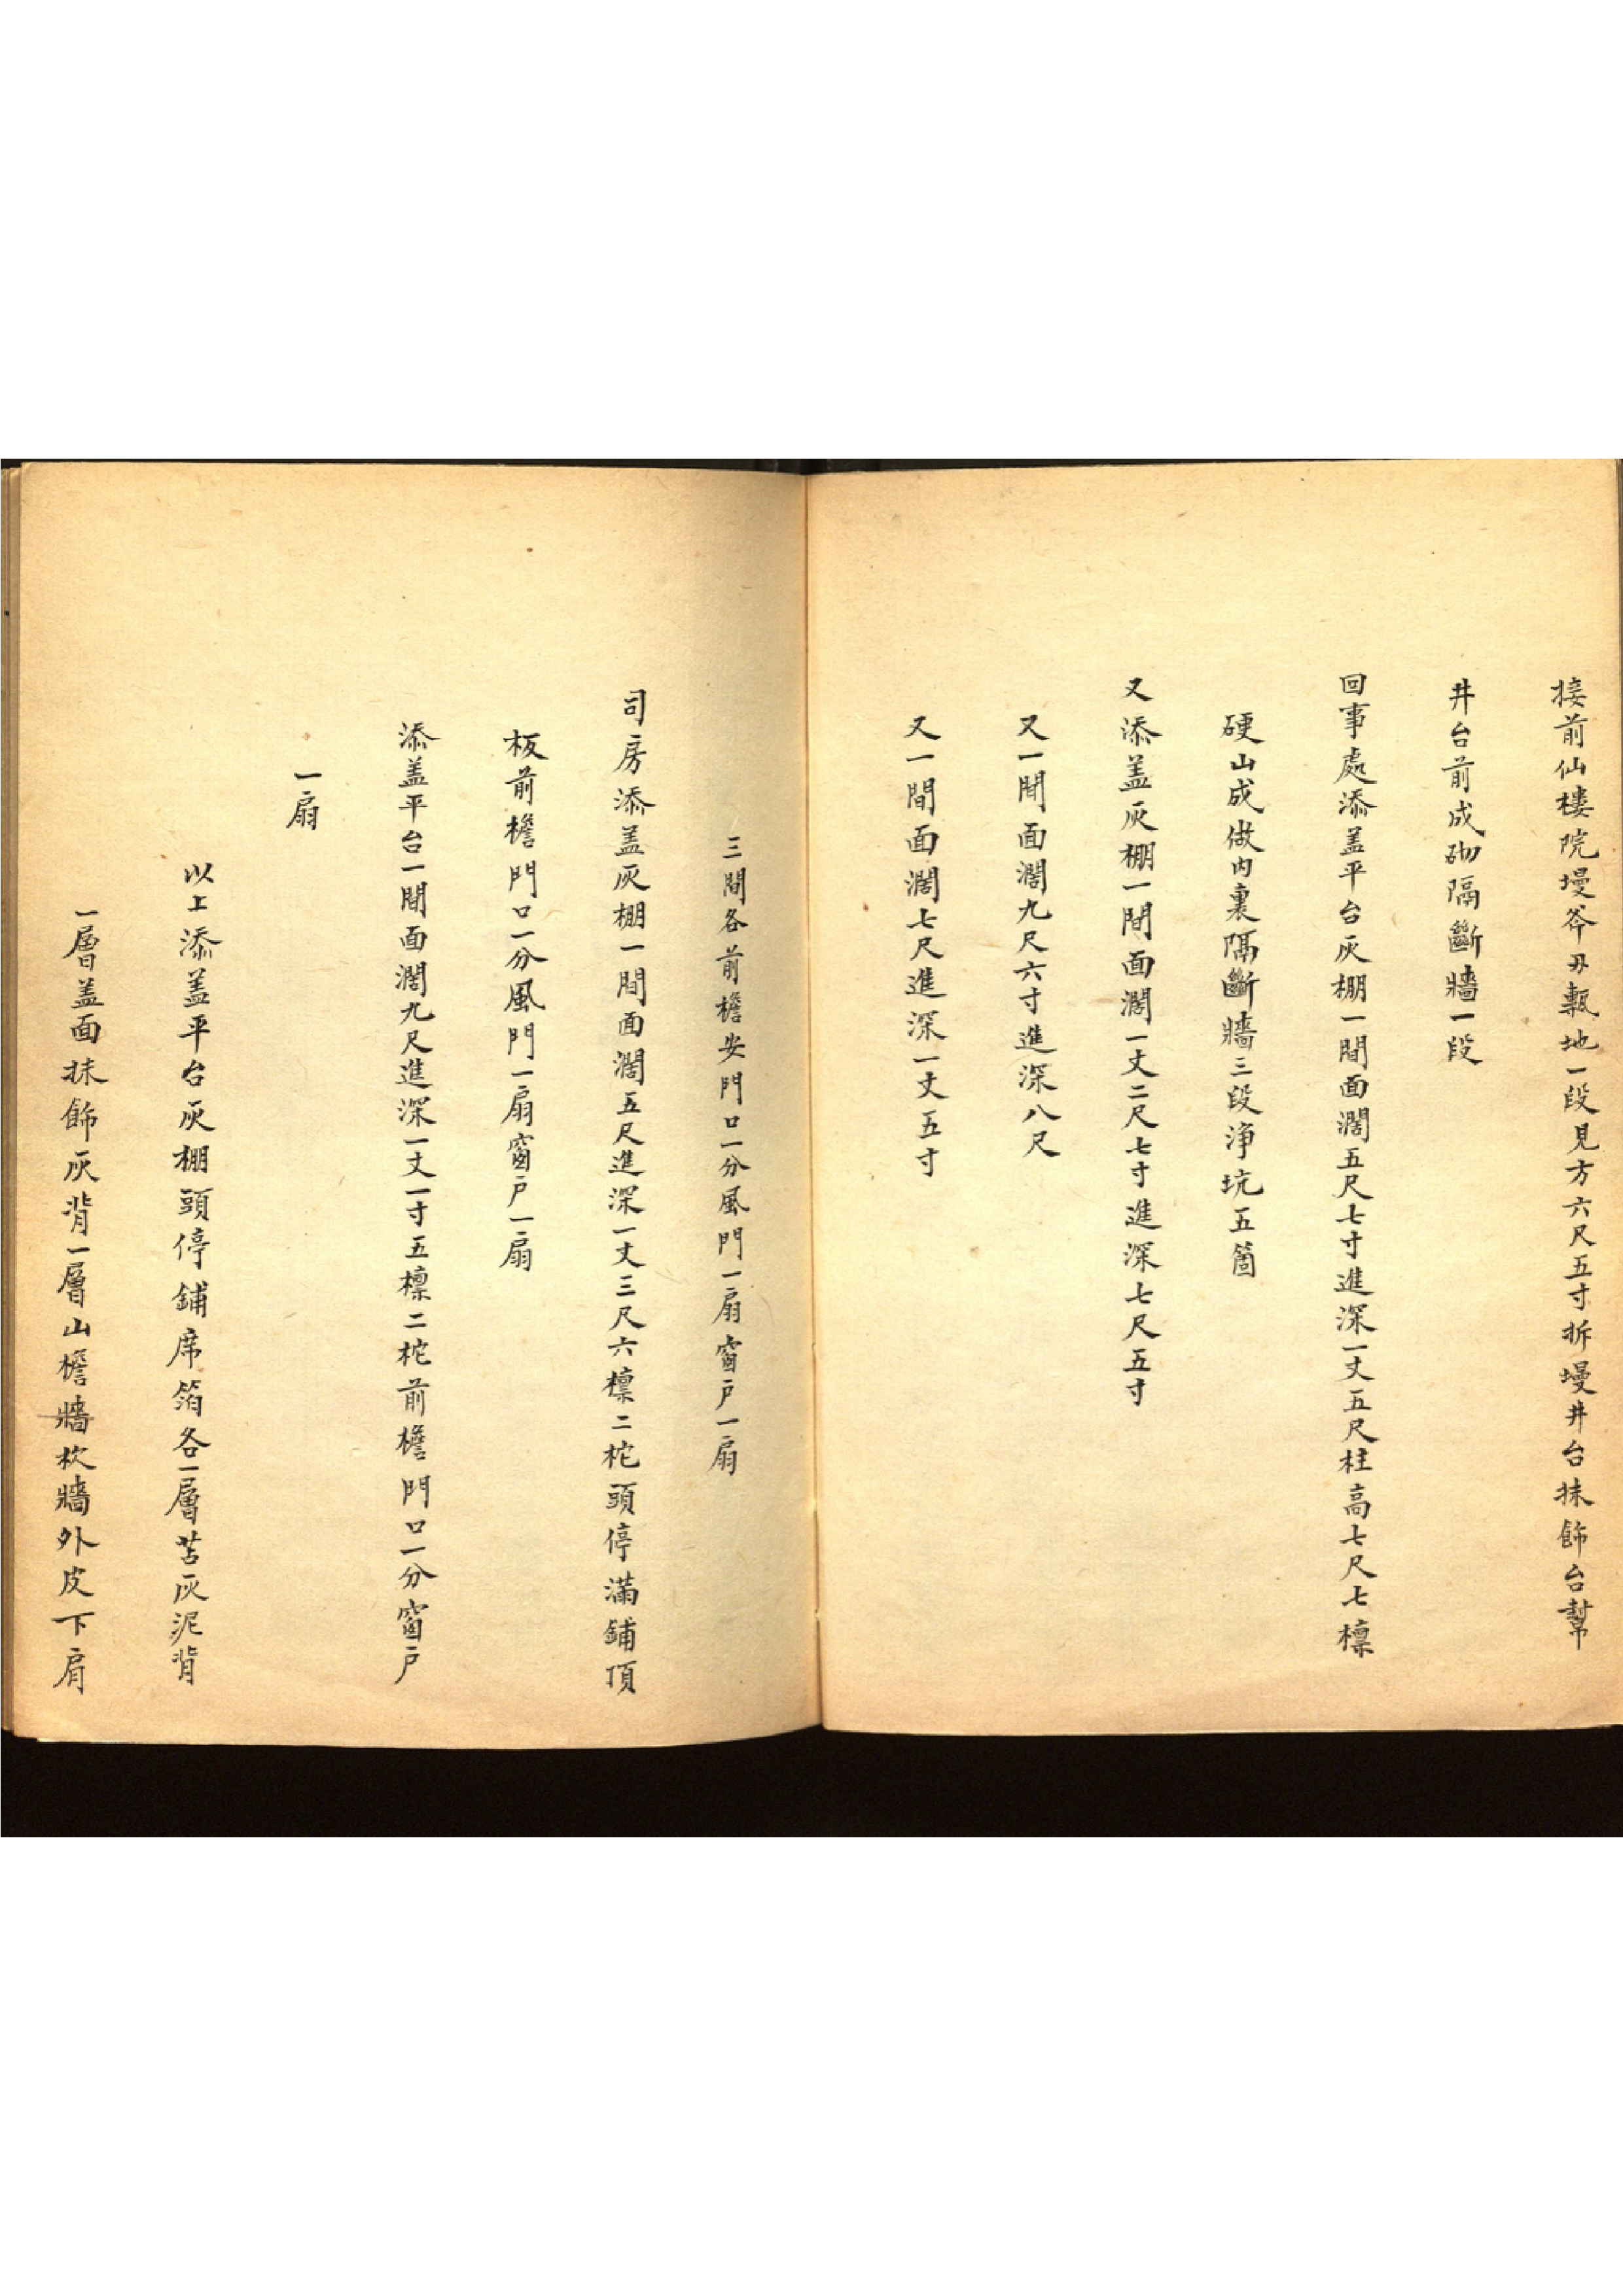 接前仙樓院墁斧刃甎地一段見方六尺五寸拆墁井台抹飾台幫
井台前成砌隔斷牆一段
回事處添盖平台灰棚一間面濶五尺七寸進深一丈五尺柱高七尺七檩
硬山成做內裏隔斷牆三段淨坑五箇
又添盖灰棚一間面濶一丈二尺七寸進深七尺五寸
又一間面濶九尺六寸進深八尺
又一間面濶七尺進深一丈五寸
三間各前檐安門口一分風門一扇窗户一扇
司房添盖灰棚一間面濶五尺進深一丈三尺六檩二柁頭停滿鋪頂
板前檐門口一分風門一扇窗户一扇
添盖平台一間面濶九尺進深一丈一寸五檩二柁前檐門口一分窗户
一扇
以上添盖平台灰棚頭停鋪席箔各一層苫灰泥背
一層盖面抹飾灰背一層山檐牆坎牆外皮下肩